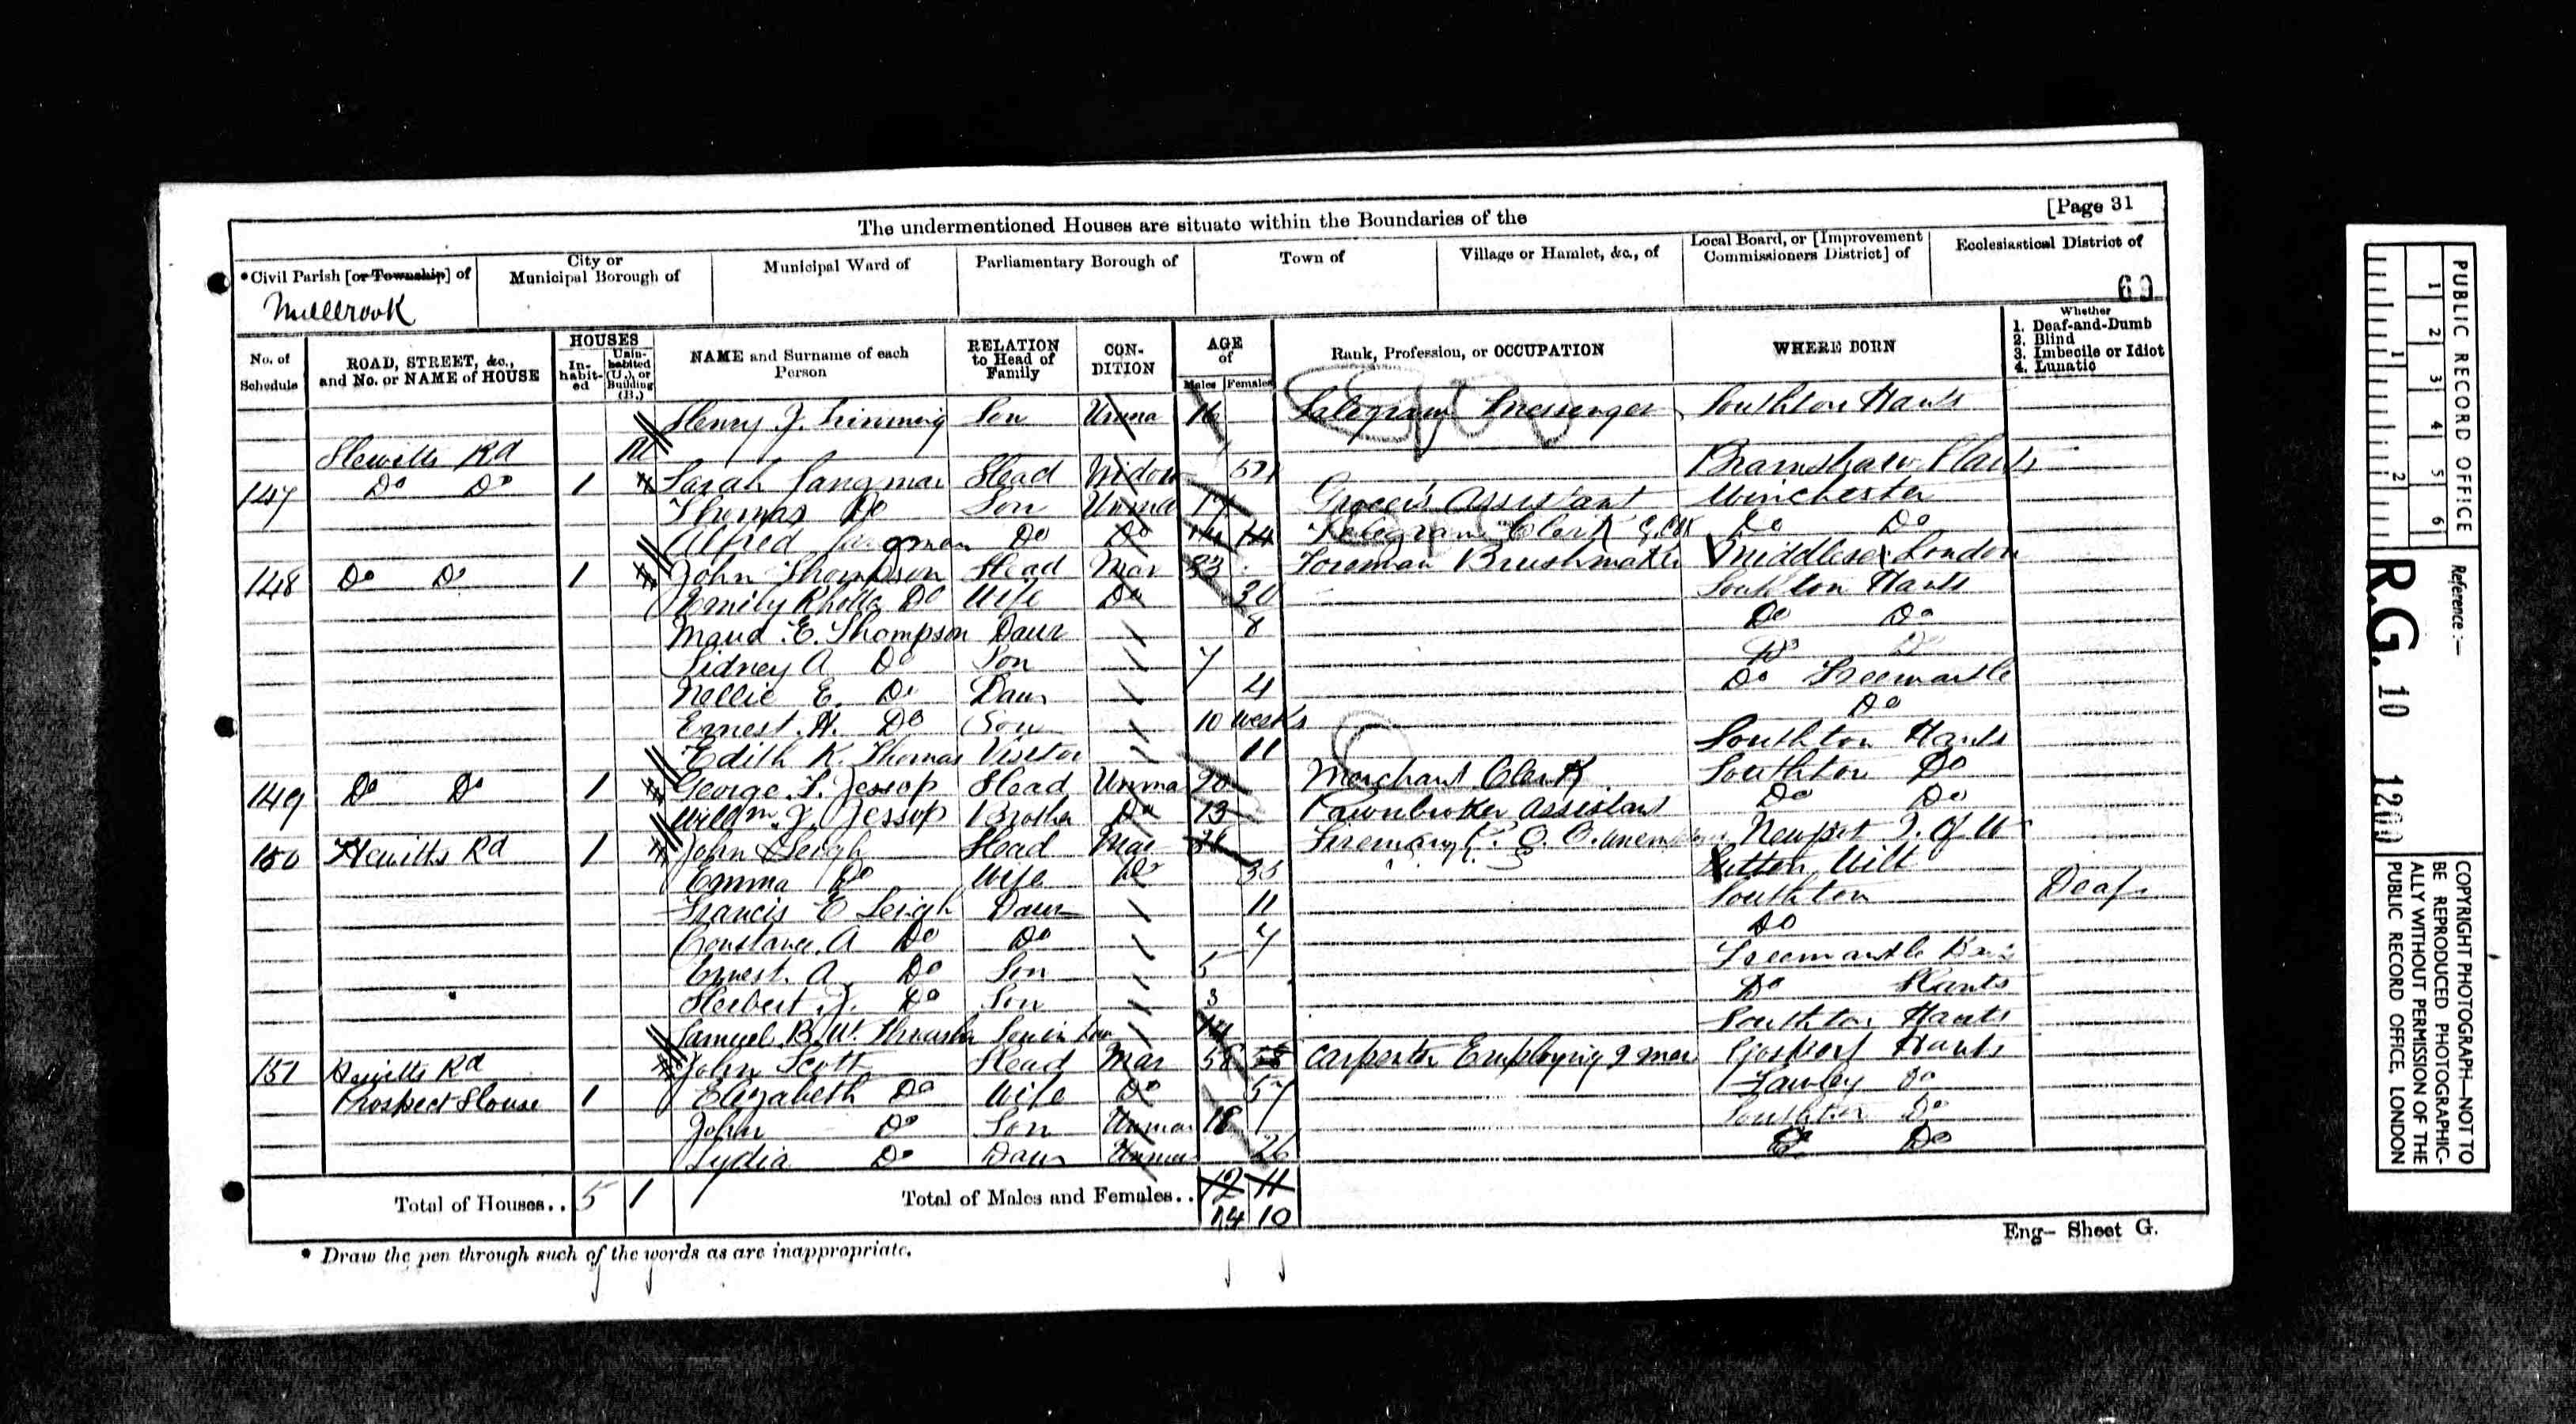 The undermentioned Houses are situate within the Boundaries of the [Page 31
*Civil Parish [or Township] of
City or Municipal Borough of
Municipal Ward of
Parliamentary Borough of
Town of
Village or Hamlet, &c., of
Local Board, or [Improvement Commissioners District] of
Ecclesiastical District of
Millbrook
69
No. of Schedule
ROAD, STREET, &c., and No. or NAME of HOUSE
HOUSES
In-habit-ed
Unin-habited (U.), or Building (B.)
NAME and Surname of each Person
RELATION to Head of Family
CON-DITION
AGE of
Males Females
Rank, Profession, or OCCUPATION
WHERE BORN
Whether
1. Deaf-and-Dumb
2. Blind
3. Imbecile or Idiot
4. Lunatic
Henry J. Son Unma 16 Telegram Messenger Southton Hants
Hewitts Rd
147 Do Do 1 Sarah Langman Head Widow Bramshaw Hants
Thomas Do Son Unma 17 Grocer's Assistant Winchester
Alfred Langman Do Do 14 14 Telegram Clerk Do Do
148 Do Do 1 John Thompson Head Mar 33 Foreman Brushmaker Middlesex London
Emily Rhoda Do Wife Do 30 Southton Hants
Maud E. Thompson Daur 8 Do Do
Sidney A Do Son 7 Do Do
Nellie E. Do Daur 4 Do Freemantle
Ernest H. Do Son 10 weeks Do
Edith K. Thomas Visitor 11 Southton Hants
149 Do Do 1 George F. Jessop Head Unma 20 Merchant Clerk Southton Do
Willm J. Jessop Brother Do 13 Pawnbroker Assistant Do Do
150 Hewitts Rd 1 John Leigh Head Mar Fireman Newport I. of W
Emma Do Wife Do 35 Sutton Wilt
Francis E Leigh Daur 11 Southton Deaf
Constance A Do Do 7 Do
Ernest A. Do Son 5 Freemantle
Herbert J. Do Son 3 Do Hants
Samuel B. W. Thrasher Son in Law 14 Southton Hants
151 Hewitts Rd John Scott Head Mar 58 58 Carpenter Employing 2 men Gosport Hants
Prospect House 1 Elizabeth Do Wife Do 57 Fawley Do
John Do Son Unmar 18 Southton Do
Lydia Do Daur Unmar 26 Do Do
Total of Houses.. 5 1 Total of Males and Females.. 12 11
14 10
Eng- Sheet G.
* Draw the pen through such of the words as are inappropriate.
PUBLIC RECORD OFFICE
1 2 3 4 5 6
1 2
Reference:-
R.G. 10 1200
COPYRIGHT PHOTOGRAPH—NOT TO BE REPRODUCED PHOTOGRAPHIC-ALLY WITHOUT PERMISSION OF THE PUBLIC RECORD OFFICE, LONDON